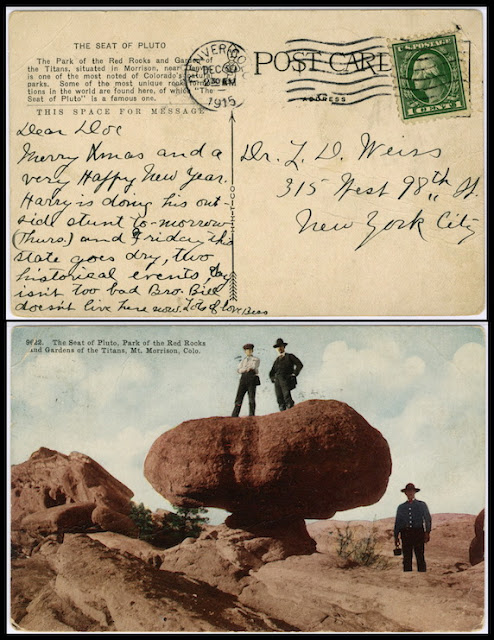 THE SEAT OF PLUTO
The Park of the Red Rocks and Garden of
the Titans, situated in Morrison, near
is one of the most noted of Colorado's
parks. Some of the most unique rock
tions in the world are found here, of which "The
Seat of Pluto" is a famous one.
THIS SPACE FOR MESSAGE
DEC
30 AM
1915
POST CARD
ADDRESS
U.S. POSTAGE
1 CENT 1
Dear Doc
Merry Xmas and a
very Happy New Year.
Harry is doing his out-
side stunt to-morrow
(Thurs.) and Friday this
state goes dry, two
historical events,
isn't too bad Bro. Bill
doesn't live here now. Lots of love
Dr. L. D. Weiss
315 West 98th St.
New York City
The Seat of Pluto, Park of the Red Rocks
and Gardens of the Titans, Mt. Morrison, Colo.